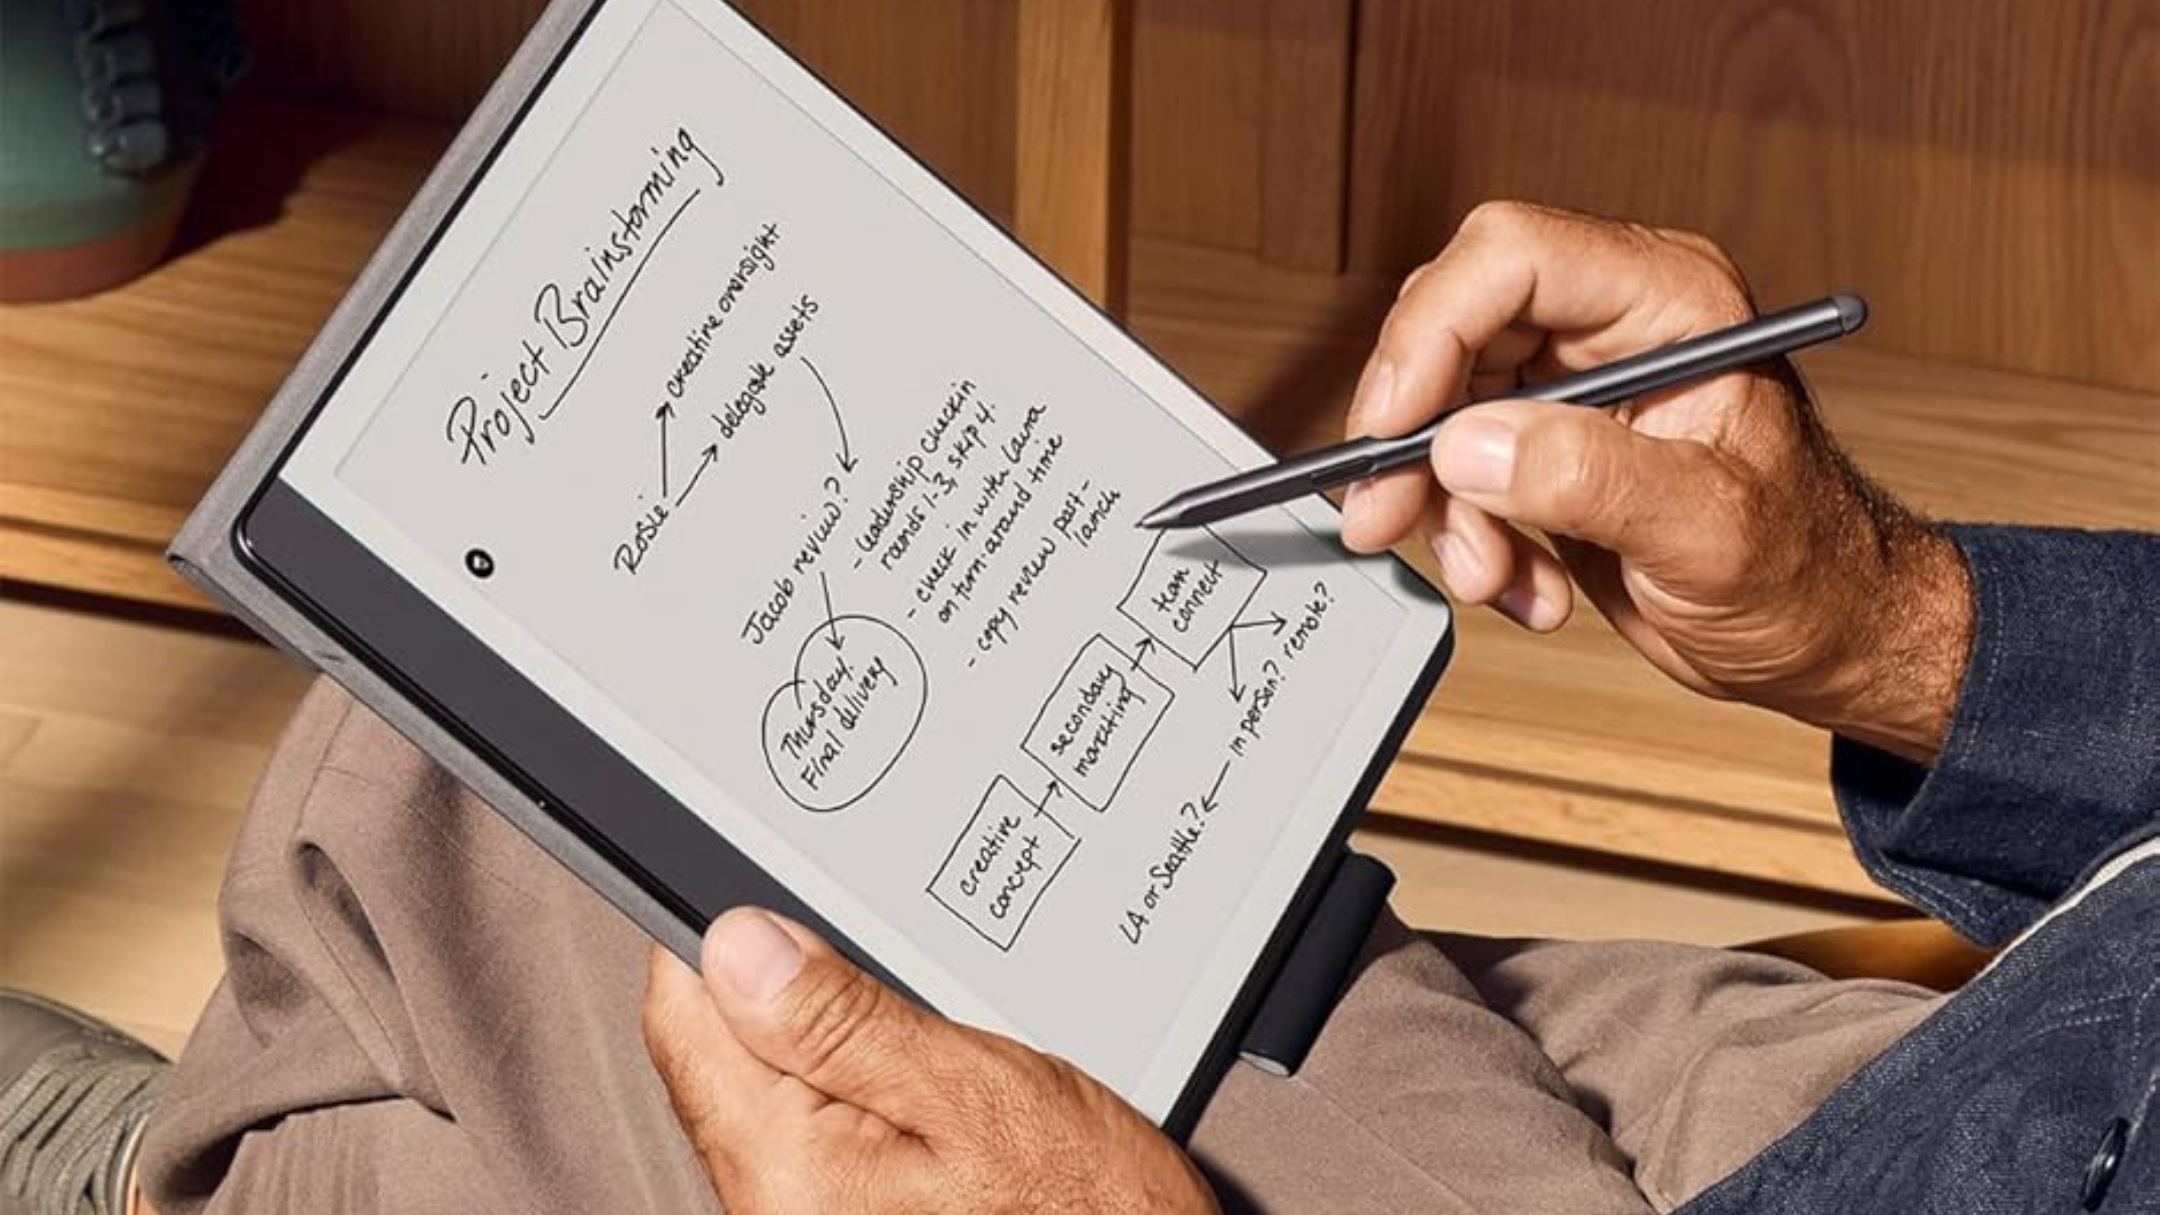 Project Brainstorming
Rosie
creative oversight
delegate assets
Jacob review?
- leadership checkin
rounds 1-3, skip 4.
- check in with Laura
on turn-around time
- copy review post-
launch
Thursday!
Final delivery
creative
concept
secondary
marketing
team
connect
in person? remote?
LA or Seattle?